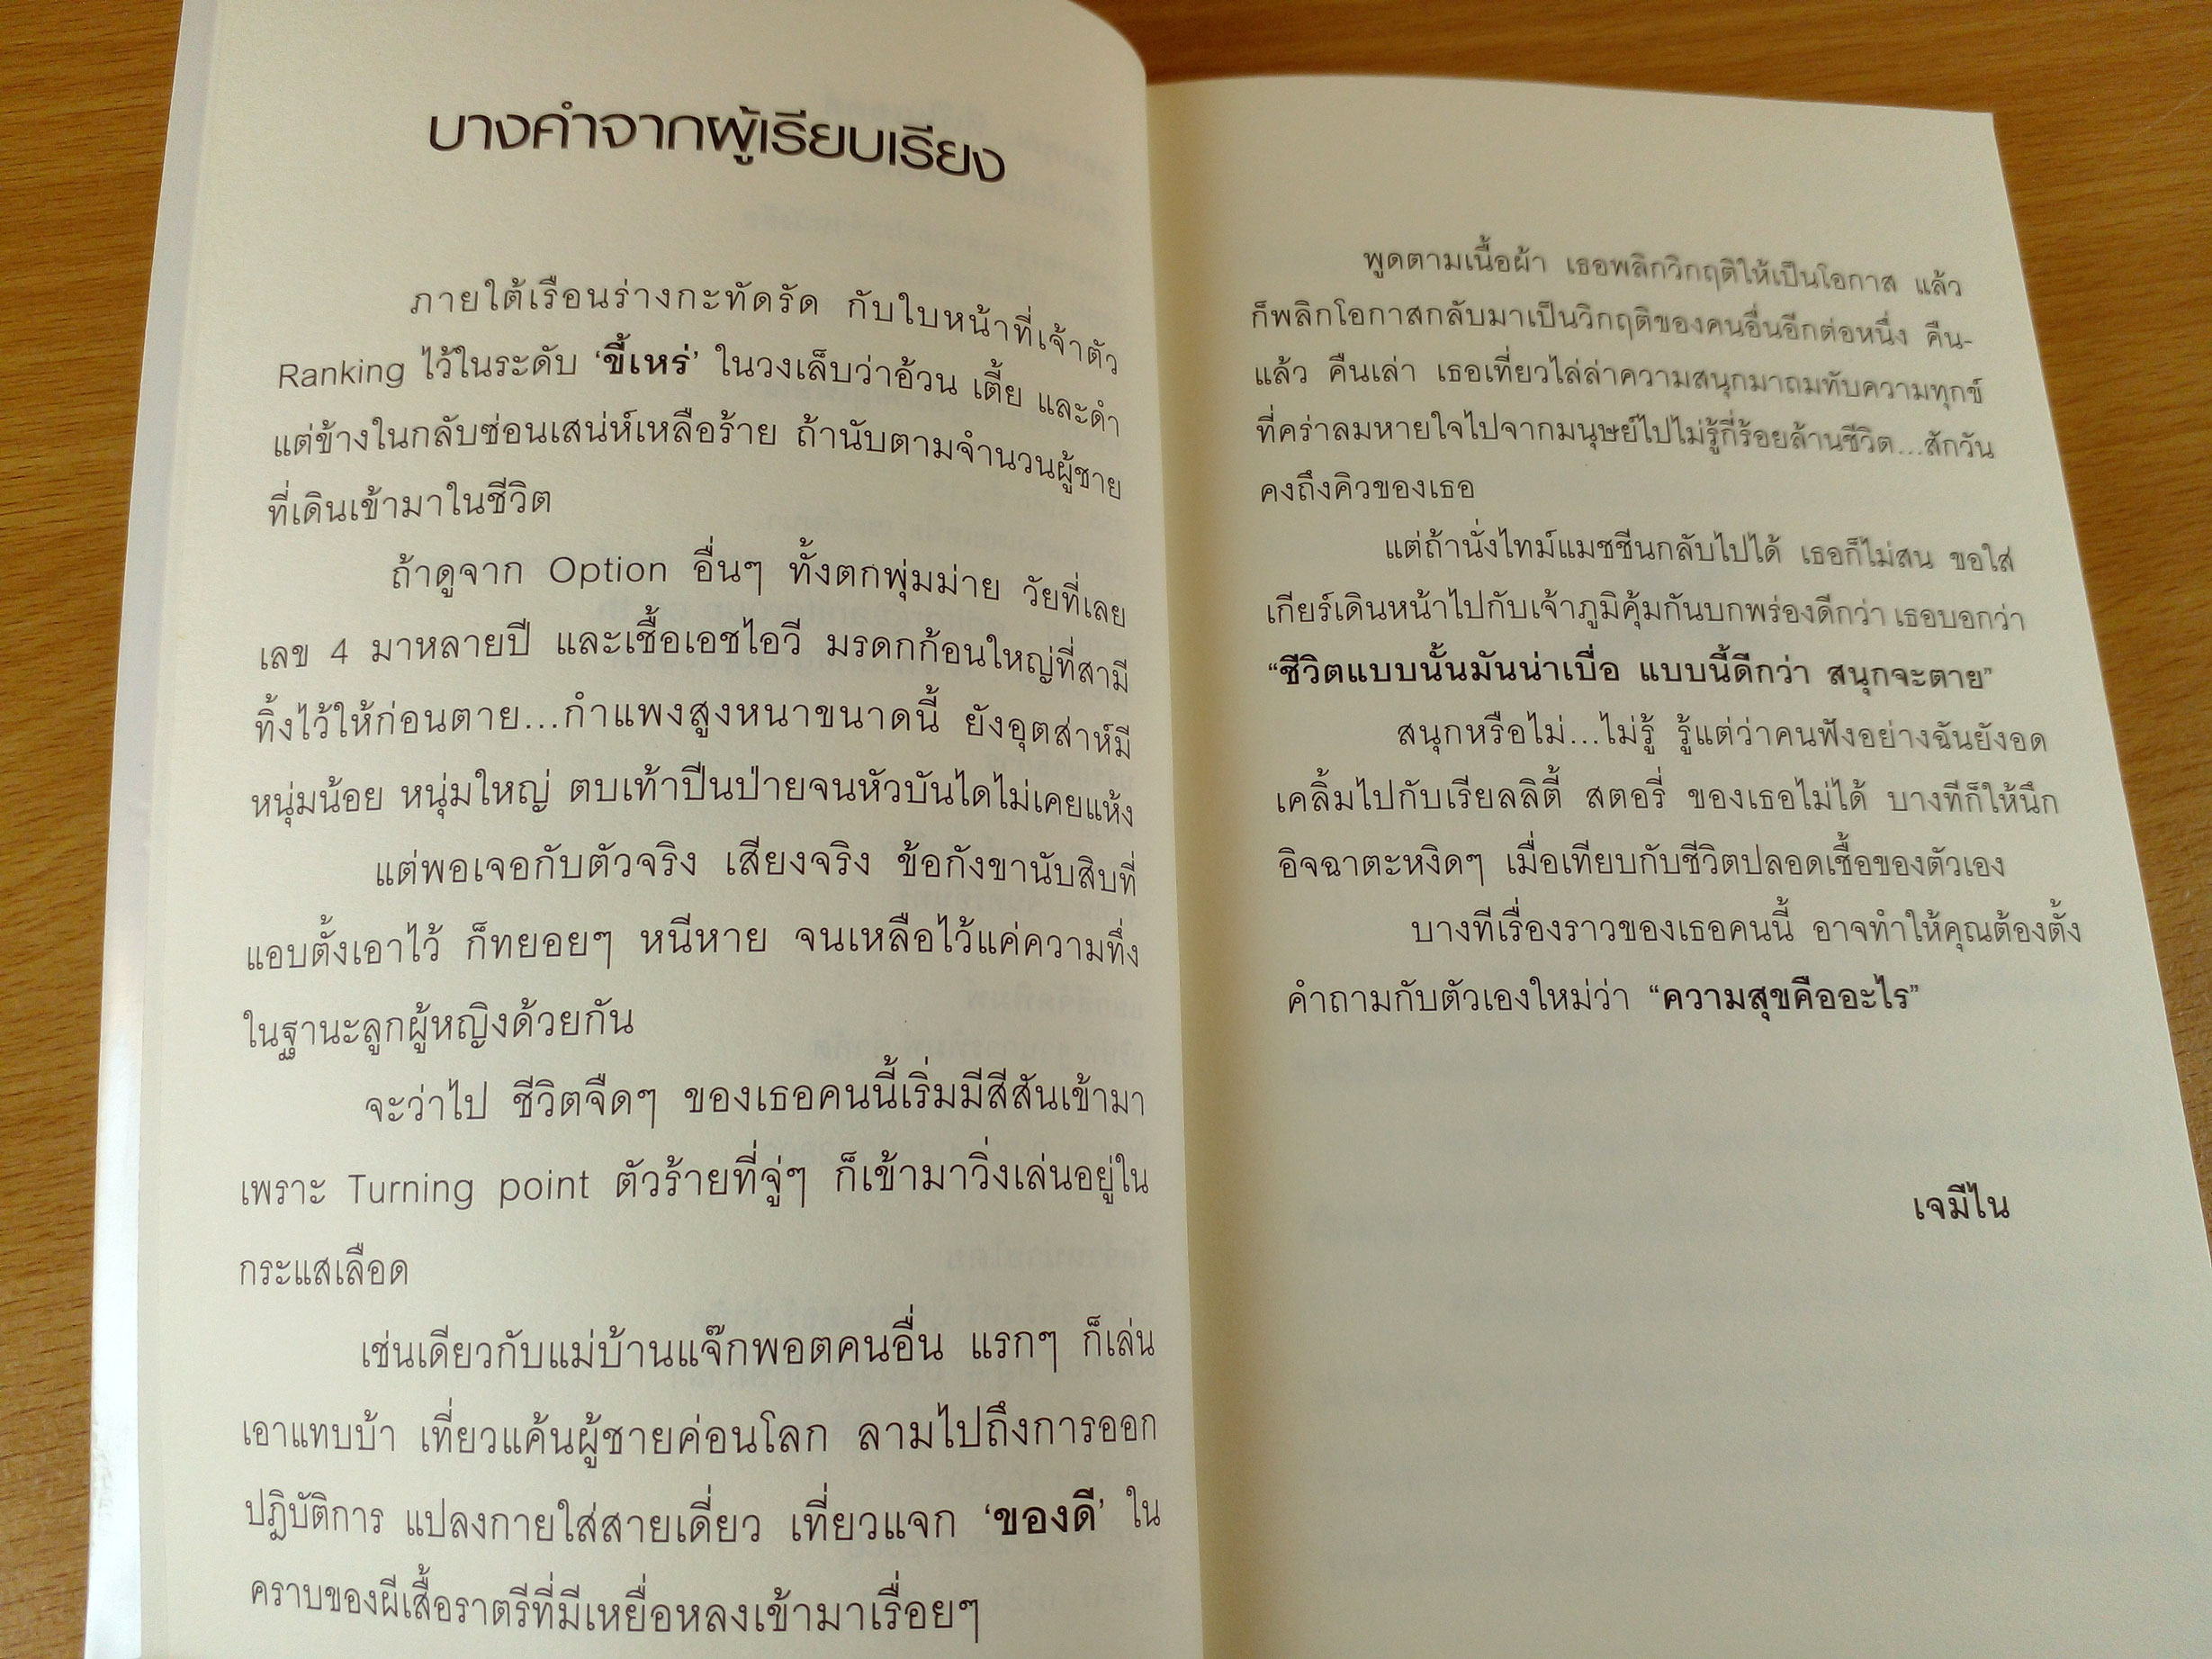 บางคำจากผู้เรียบเรียง
ภายใต้เรือนร่างกะทัดรัด กับใบหน้าที่เจ้าตัว
Ranking ไว้ในระดับ ‘ขี้เหร่’ ในวงเล็บว่าอ้วน เตี้ย และดำ
แต่ข้างในกลับซ่อนเสน่ห์เหลือร้าย ถ้านับตามจำนวนผู้ชาย
ที่เดินเข้ามาในชีวิต
ถ้าดูจาก Option อื่นๆ ทั้งตกพุ่มม่าย วัยที่เลย
เลข 4 มาหลายปี และเชื้อเอชไอวี มรดกก้อนใหญ่ที่สามี
ทิ้งไว้ให้ก่อนตาย...กำแพงสูงหนาขนาดนี้ ยังอุตสาห์มี
หนุ่มน้อย หนุ่มใหญ่ ตบเท้าปีนป่ายจนหัวบันไดไม่เคยแห้ง
แต่พอเจอกับตัวจริง เสียงจริง ข้อกังขานับสิบที่
แอบตั้งเอาไว้ ก็ทยอยๆ หนีหาย จนเหลือไว้แค่ความทึ่ง
ในฐานะลูกผู้หญิงด้วยกัน
จะว่าไป ชีวิตจืดๆ ของเธอคนนี้เริ่มมีสีสันเข้ามา
เพราะ Turning point ตัวร้ายที่จู่ๆ ก็เข้ามาวิ่งเล่นอยู่ใน
กระแสเลือด
เช่นเดียวกับแม่บ้านแจ๊กพอตคนอื่น แรกๆ ก็เล่น
เอาแทบบ้า เที่ยวแค้นผู้ชายค่อนโลก ลามไปถึงการออก
ปฏิบัติการ แปลงกายใส่สายเดี่ยว เที่ยวแจก ‘ของดี’ ใน
คราบของผีเสื้อราตรีที่มีเหยื่อหลงเข้ามาเรื่อยๆ
พูดตามเนื้อผ้า เธอพลิกวิกฤติให้เป็นโอกาส แล้ว
ก็พลิกโอกาสกลับมาเป็นวิกฤติของคนอื่นอีกต่อหนึ่ง คืน-
แล้ว คืนเล่า เธอเที่ยวไล่ล่าความสนุกมาถมทับความทุกข์
ที่คร่าลมหายใจไปจากมนุษย์ไปไม่รู้กี่ร้อยล้านชีวิต...สักวัน
คงถึงคิวของเธอ
แต่ถ้านั่งไทม์แมชชีนกลับไปได้ เธอก็ไม่สน ขอใส่
เกียร์เดินหน้าไปกับเจ้าภูมิคุ้มกันบกพร่องดีกว่า เธอบอกว่า
“ชีวิตแบบนั้นมันน่าเบื่อ แบบนี้ดีกว่า สนุกจะตาย”
สนุกหรือไม่...ไม่รู้ รู้แต่ว่าคนฟังอย่างฉันยังอด
เคลิ้มไปกับเรียลลิตี้ สตอรี่ ของเธอไม่ได้ บางทีก็ให้นึก
อิจฉาตะหงิดๆ เมื่อเทียบกับชีวิตปลอดเชื้อของตัวเอง
บางทีเรื่องราวของเธอคนนี้ อาจทำให้คุณต้องตั้ง
คำถามกับตัวเองใหม่ว่า “ความสุขคืออะไร”
เจมีไน